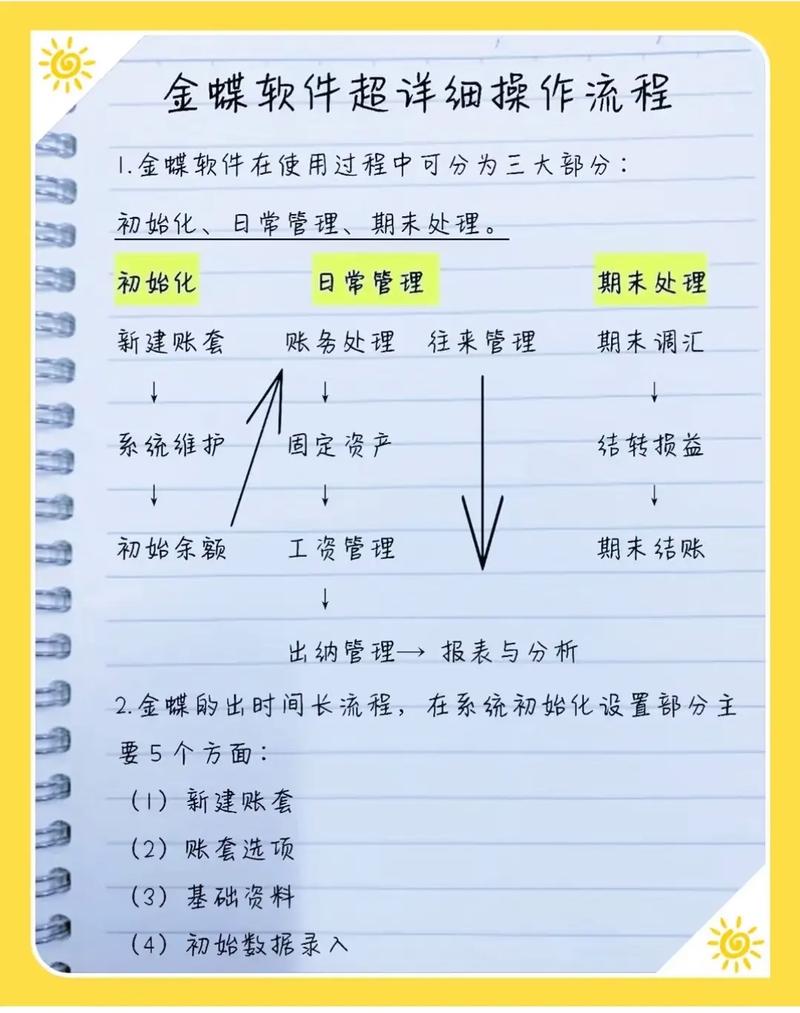 金蝶软件超详细操作流程
1.金蝶软件在使用过程中可分为三大部分：
初始化、日常管理、期末处理。
初始化 日常管理 期末处理
新建账套 账务处理 往来管理 期末调汇
↓ ↓ ↓
系统维护 固定资产 结转损益
↓ ↓ ↓
初始余额 工资管理 期末结账
↓
出纳管理→ 报表与分析
2.金蝶的出时间长流程，在系统初始化设置部分主
要5个方面：
（1）新建账套
（2）账套选项
（3）基础资料
（4）初始数据录入